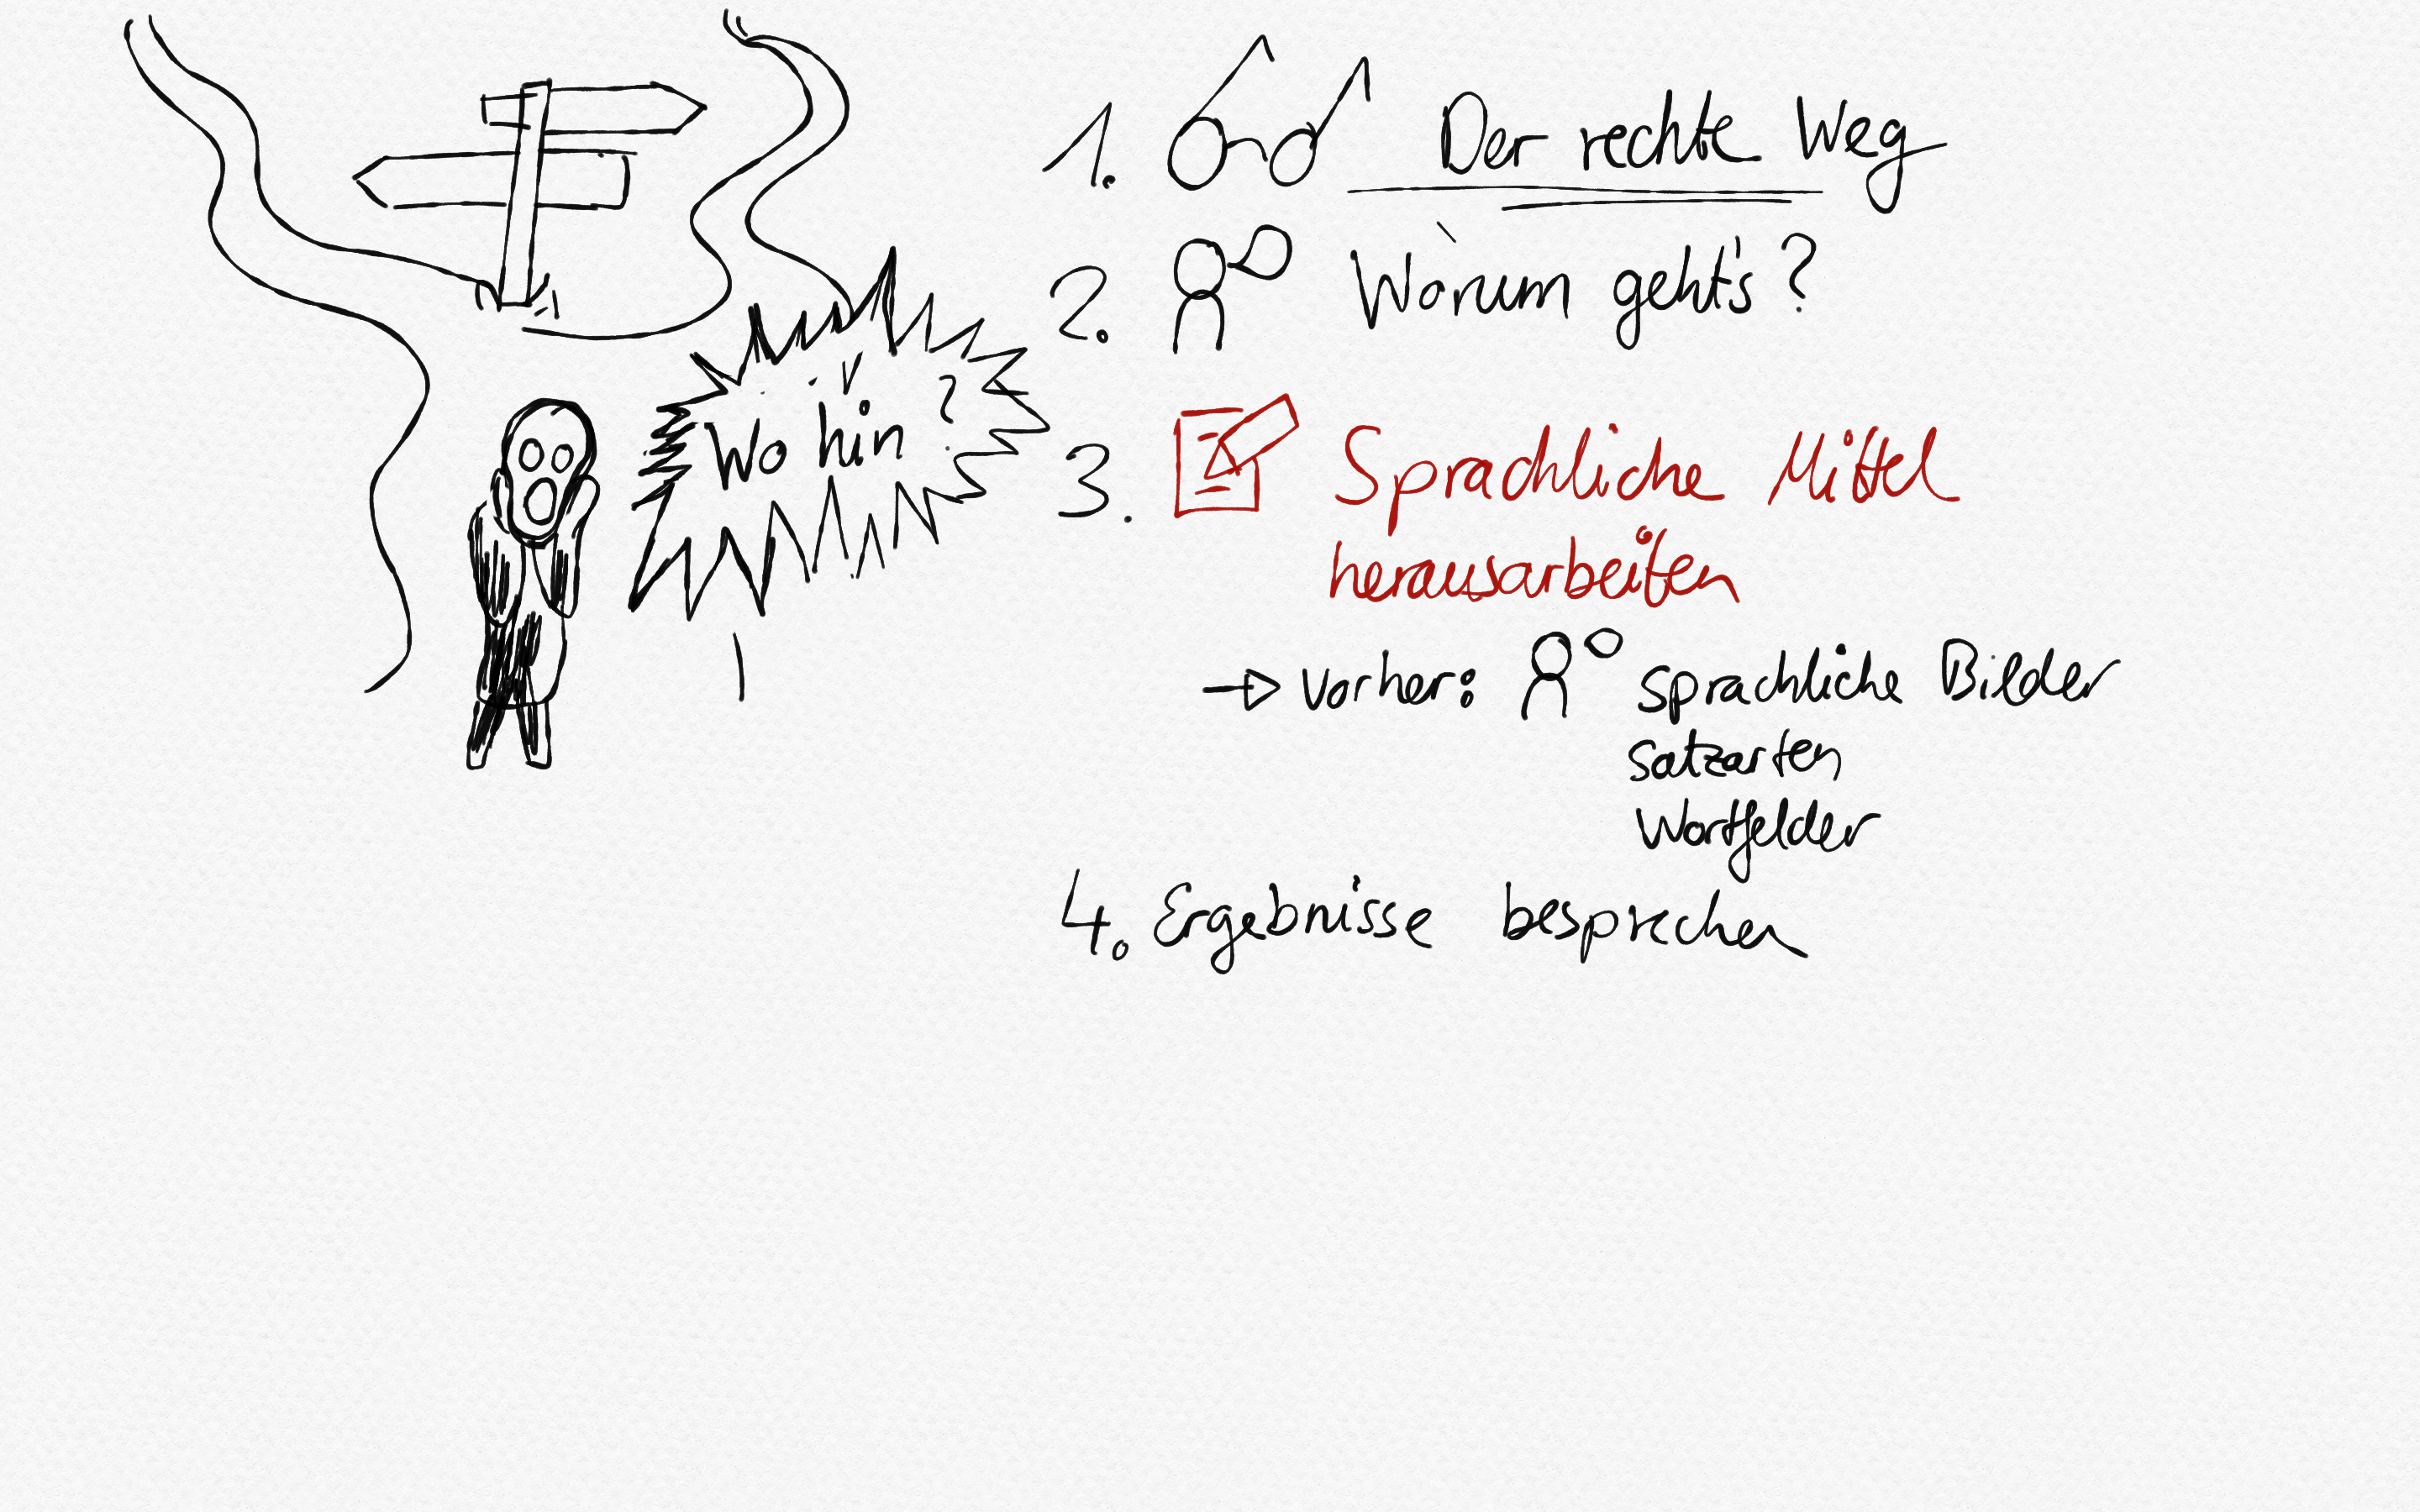 Wo hin ?
1. Der rechte Weg
2. Worum geht's ?
3. Sprachliche Mittel
herausarbeiten
→ Vorher: sprachliche Bilder
Satzarten
Wortfelder
4. Ergebnisse besprechen